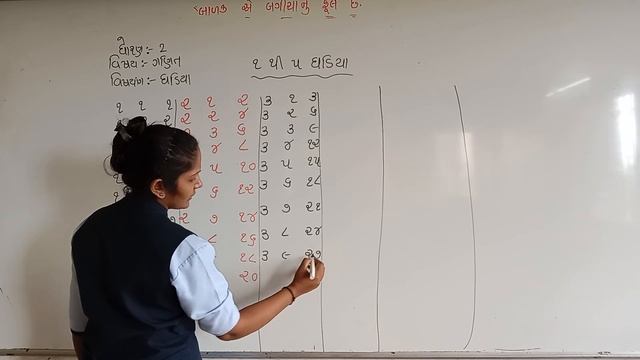 બાળક એ બગીચાનું ફૂલ છે.
ધોરણ:- 2
વિષય:- ગણિત
વિષયાંગ:- ઘડિયા
૧ થી ૫ ઘડિયા
૧ ૧ ૧ ૨ ૧ ૨ ૩ ૧ ૩
૨ ૨ ૨ ૪ ૩ ૨ ૬
૩ ૬ ૩ ૩ ૯
૪ ૮ ૩ ૪ ૧૨
૫ ૧૦ ૩ ૫ ૧૫
૬ ૧૨ ૩ ૬ ૧૮
૨ ૭ ૧૪ ૩ ૭ ૨૧
૮ ૧૬ ૩ ૮ ૨૪
૧૮ ૩ ૯ ૨૭
૨૦